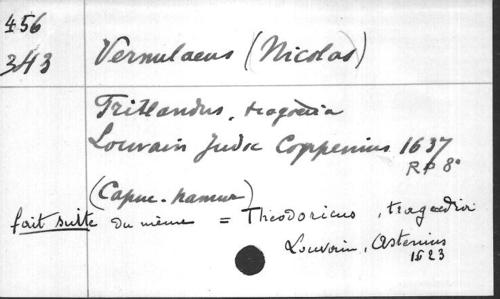 456
343
Vernulaeus (Nicolas)
Tritlandus, tragoedia
Louvain Judoc Coppenius 1637
RP 8°
(Capuc. Namur)
fait suite du même = Theodoricus, tragoedia
Louvain, Ostenius
1623